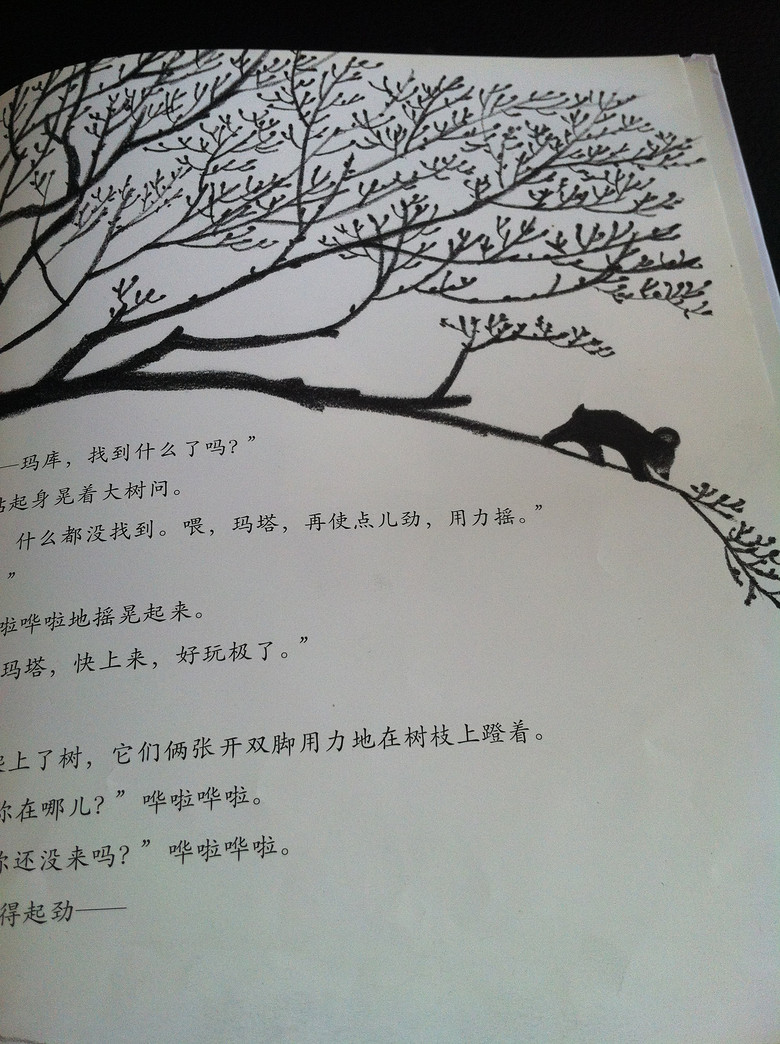 ——玛库，找到什么了吗？”
起身晃着大树问。
什么都没找到。喂，玛塔，再使点儿劲，用力摇。”
”
啦哗啦地摇晃起来。
玛塔，快上来，好玩极了。”
上了树，它们俩张开双脚用力地在树枝上蹬着。
你在哪儿？”哗啦哗啦。
你还没来吗？”哗啦哗啦。
得起劲——